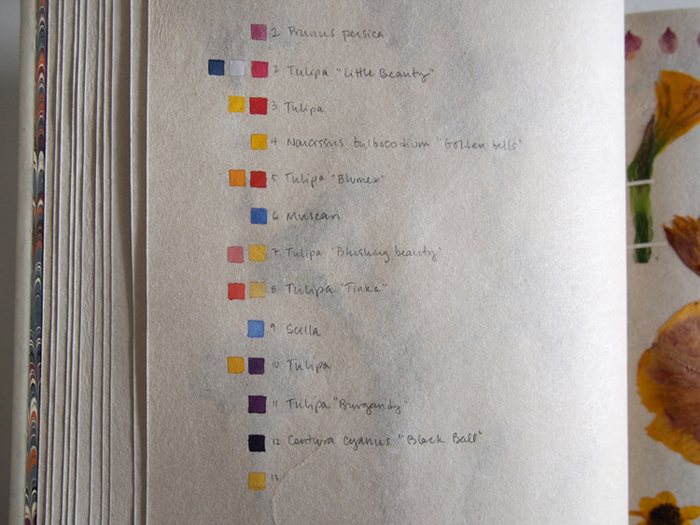 1 Prunus persica
2 Tulipa "Little Beauty"
3. Tulipa
4 Narcissus bulbocodium "Golden bells"
5 Tulipa "Blumex"
6 Muscari
7 Tulipa "Blushing beauty"
8 Tulipa "Tinka"
9 Scilla
10 Tulipa
11 Tulipa "Burgandy"
12 Centura cyanus "Black Ball"
13